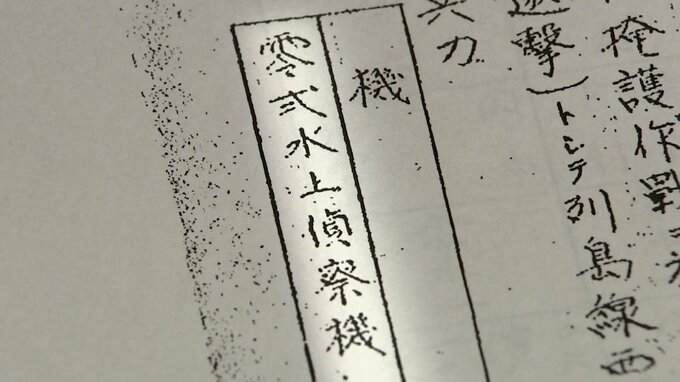 掩護作戰
遊撃)トシテ列島線西
兵力
機
零式水上偵察機